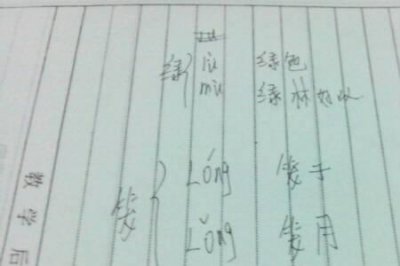 绿
lù 绿色
绿林好汉
笼
Lóng 笼子
Lǒng 笼
教学后